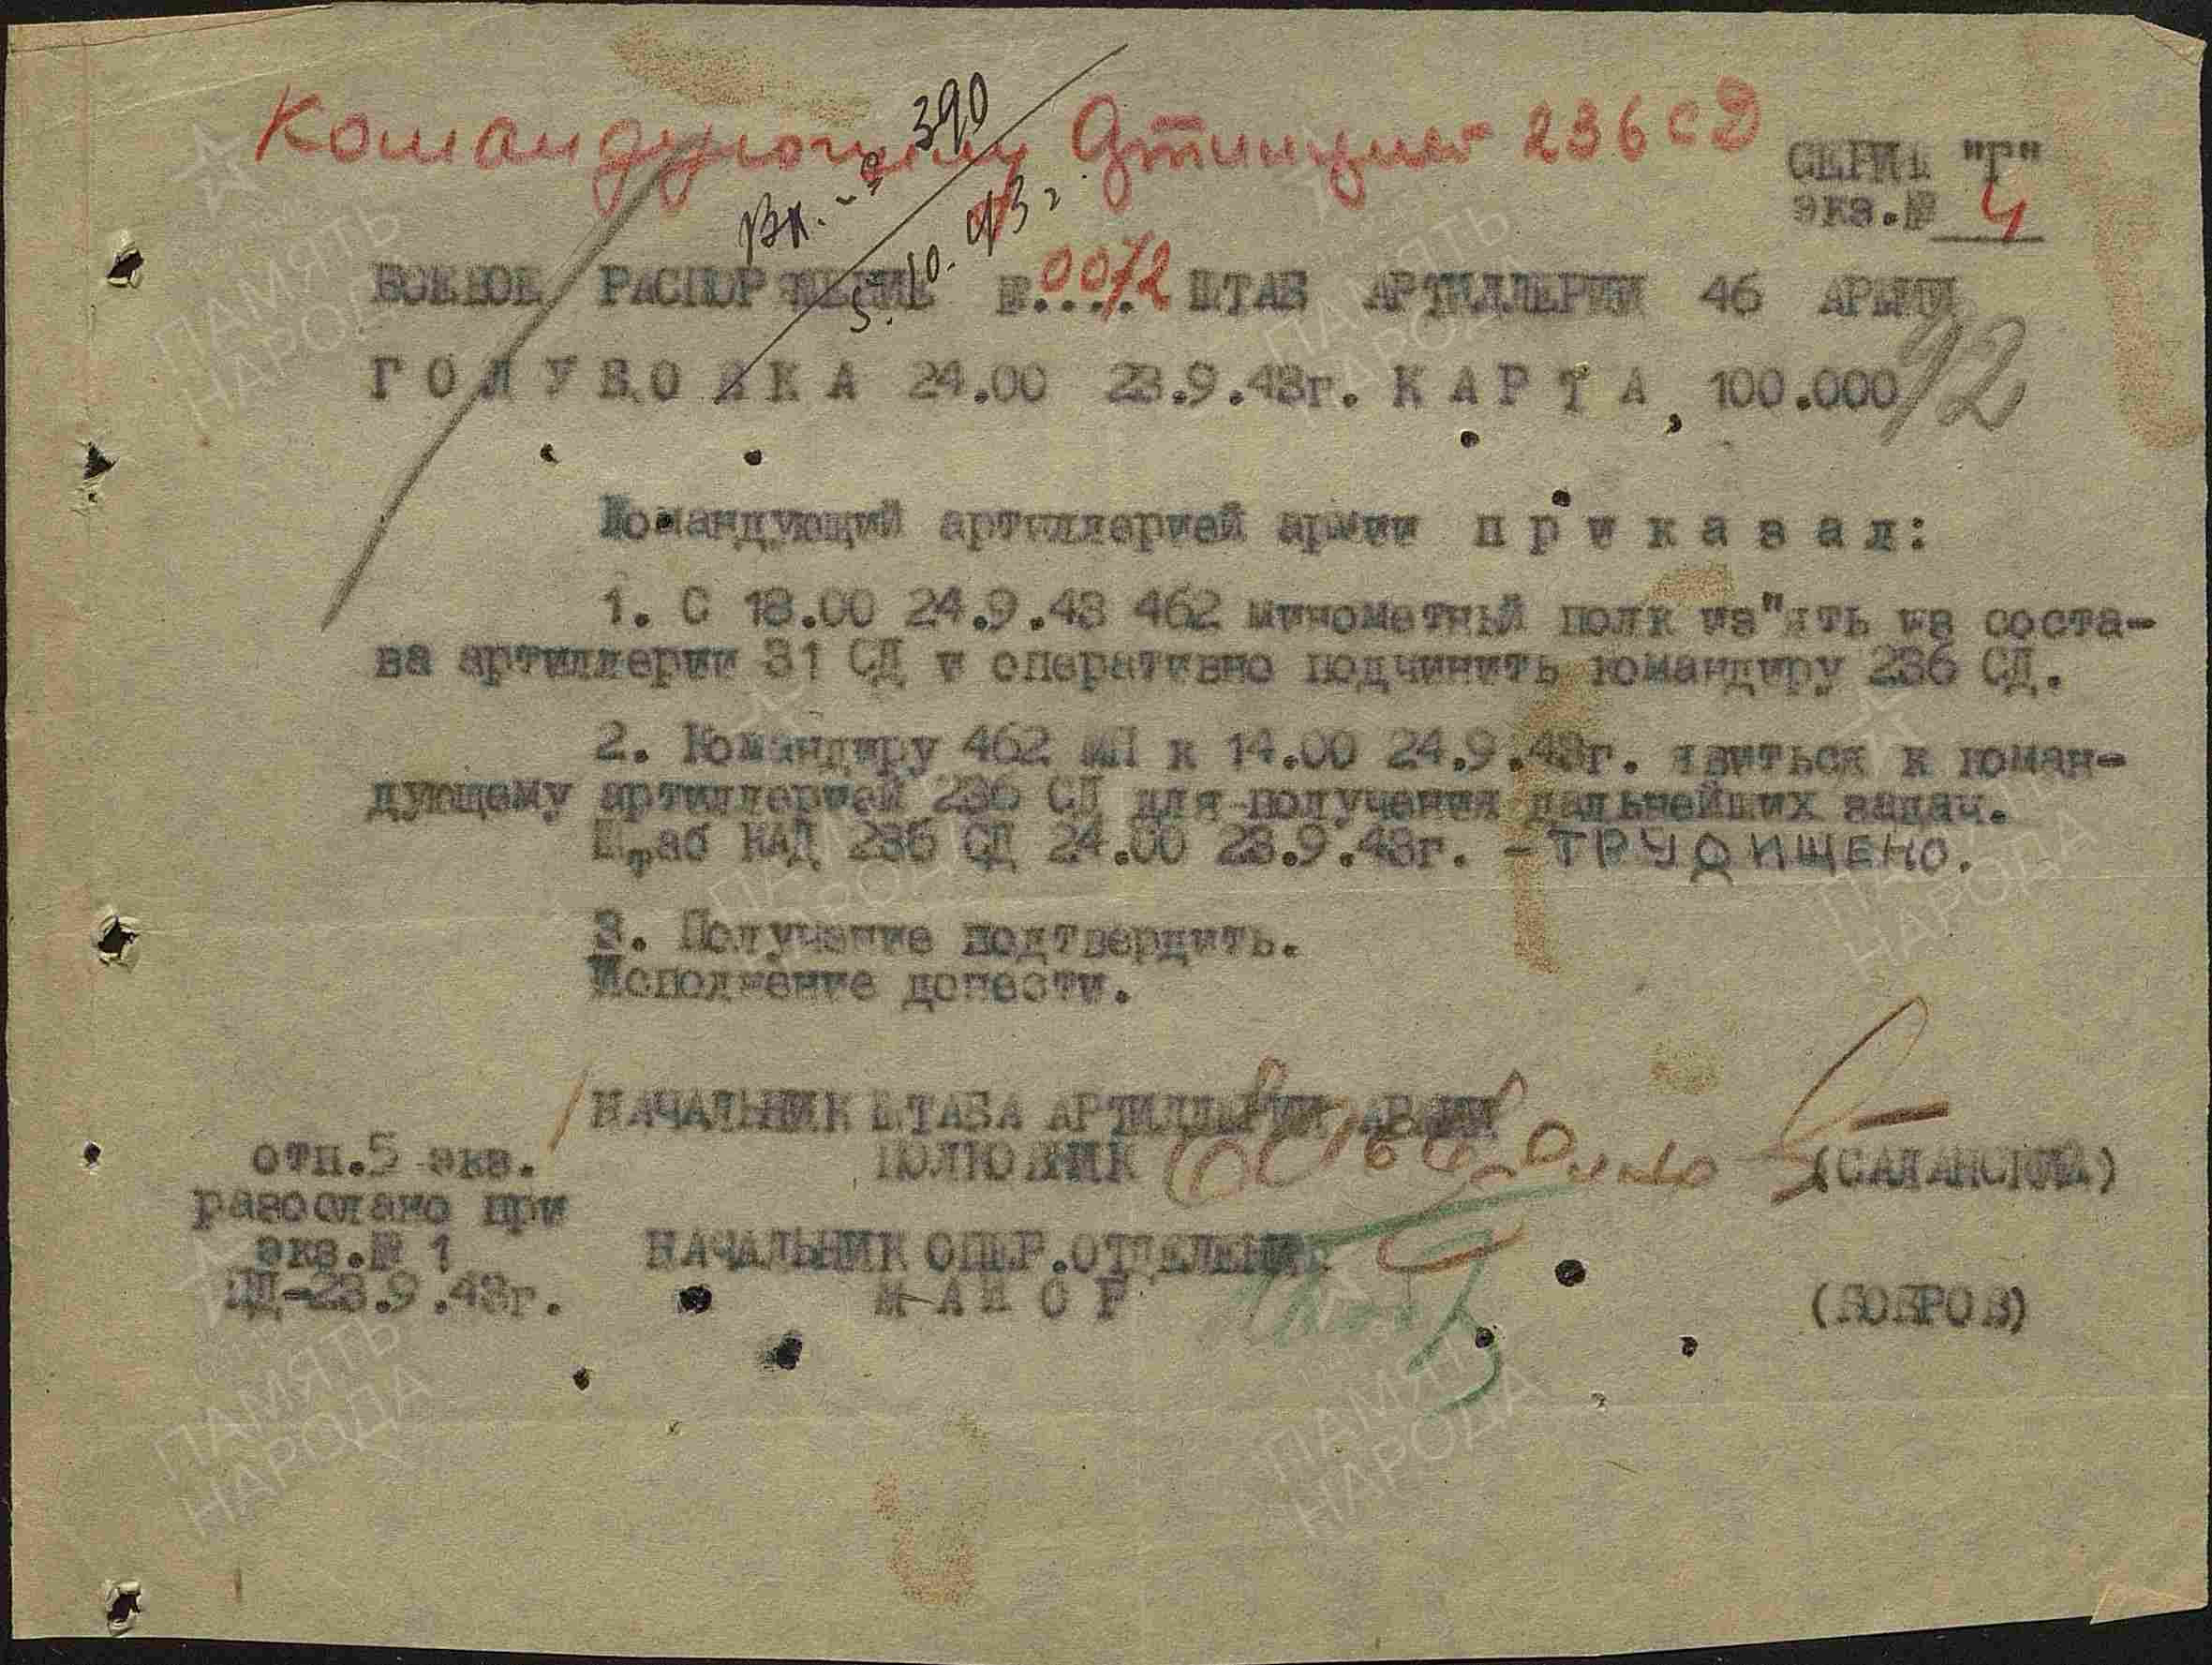 Командующему Артиллерией 236 СД
Вх. № 390
5.10.43 г.
СЕРИЯ "Г"
экз.№ 4
БОЕВОЕ РАСПОРЯЖЕНИЕ №.0072 ШТАБ АРТИЛЛЕРИИ 46 АРМИИ
Г О Л У Б О В К А 24.00 23.9.43г. К А Р Т А 100.000
92
Командующий артиллерией армии п р и к а з а л:
1. С 18.00 24.9.43 462 минометный полк из"ять из соста-
ва артиллерии 31 СД и оперативно подчинить командиру 236 СД.
2. Командиру 462 МП к 14.00 24.9.43г. явиться к коман-
дующему артиллерией 236 СД для получения дальнейших задач.
Штаб НАД 236 СД 24.00 23.9.43г. - ТРУДИЩЕНО.
3. Получение подтвердить.
Исполнение донести.
НАЧАЛЬНИК ШТАБА АРТИЛЛЕРИИ АРМИИ
ПОЛКОВНИК (САЛАНСКИЙ)
НАЧАЛЬНИК ОПЕР.ОТДЕЛЕНИЯ
М А Й О Р (БОБРОВ)
отп.5 экз.
разослано при
экз.№ 1
ЦД-23.9.43г.
ПАМЯТЬ
НАРОДА
ПАМЯТЬ
НАРОДА
ПАМЯТЬ
НАРОДА
ПАМЯТЬ
НАРОДА
ПАМЯТЬ
НАРОДА
ПАМЯТЬ
НАРОДА